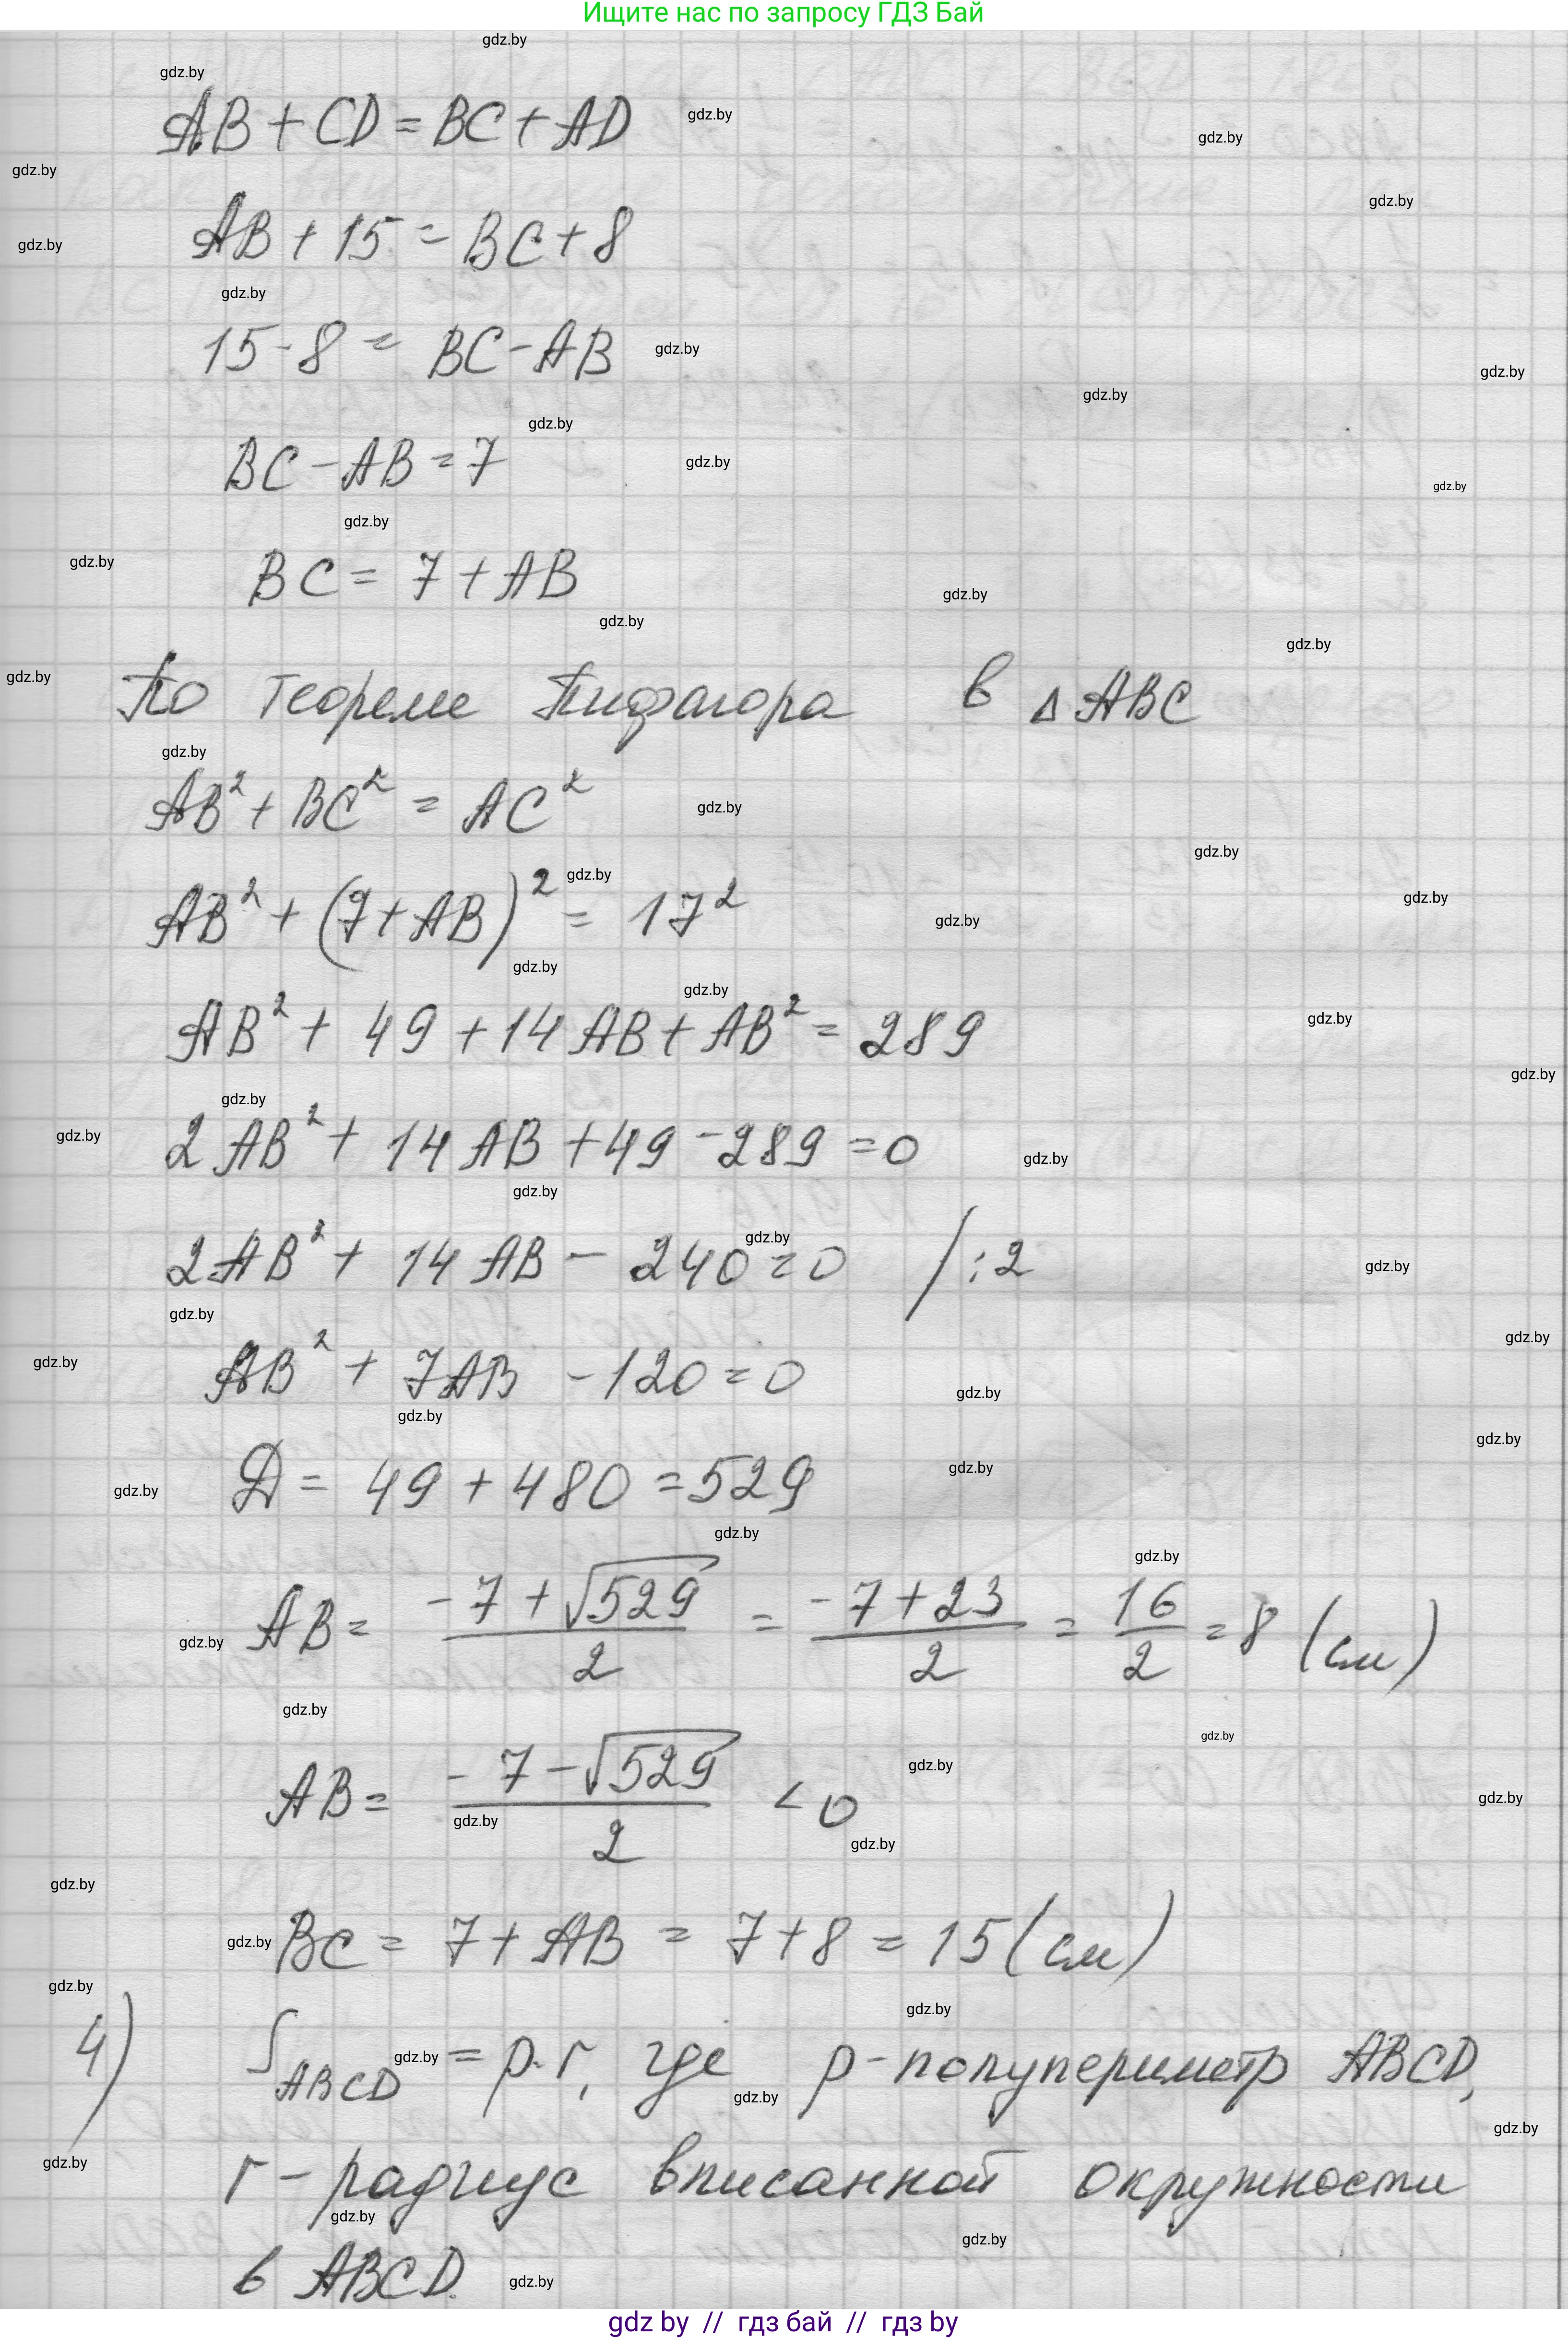 Ищите нас по запросу ГДЗ Бай
AB + CD = BC + AD
AB + 15 = BC + 8
15 - 8 = BC - AB
BC - AB = 7
BC = 7 + AB
По теореме Пифагора в △ABC
AB² + BC² = AC²
AB² + (7 + AB)² = 17²
AB² + 49 + 14AB + AB² = 289
2AB² + 14AB + 49 - 289 = 0
2AB² + 14AB - 240 = 0 / :2
AB² + 7AB - 120 = 0
Д = 49 + 480 = 529
AB = (-7 + √529)/2 = (-7 + 23)/2 = 16/2 = 8 (см)
AB = (-7 - √529)/2 < 0
BC = 7 + AB = 7 + 8 = 15 (см)
4) S_ABCD = p·r, где p - полупериметр ABCD,
r - радиус вписанной окружности
в ABCD.
gdz by // гдз бай // гдз by